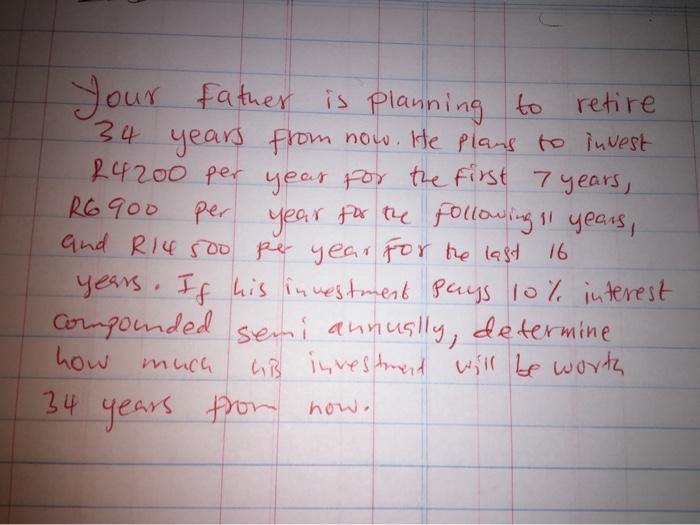 Your father is planning to retire
34 years from now. He plans to invest
R4200 per year for the first 7 years,
R6900 per year for the following 11 years,
and R14 500 per year for the last 16
years. If his investment pays 10% interest
compounded semi annually, determine
how much his investment will be worth
34 years from now.